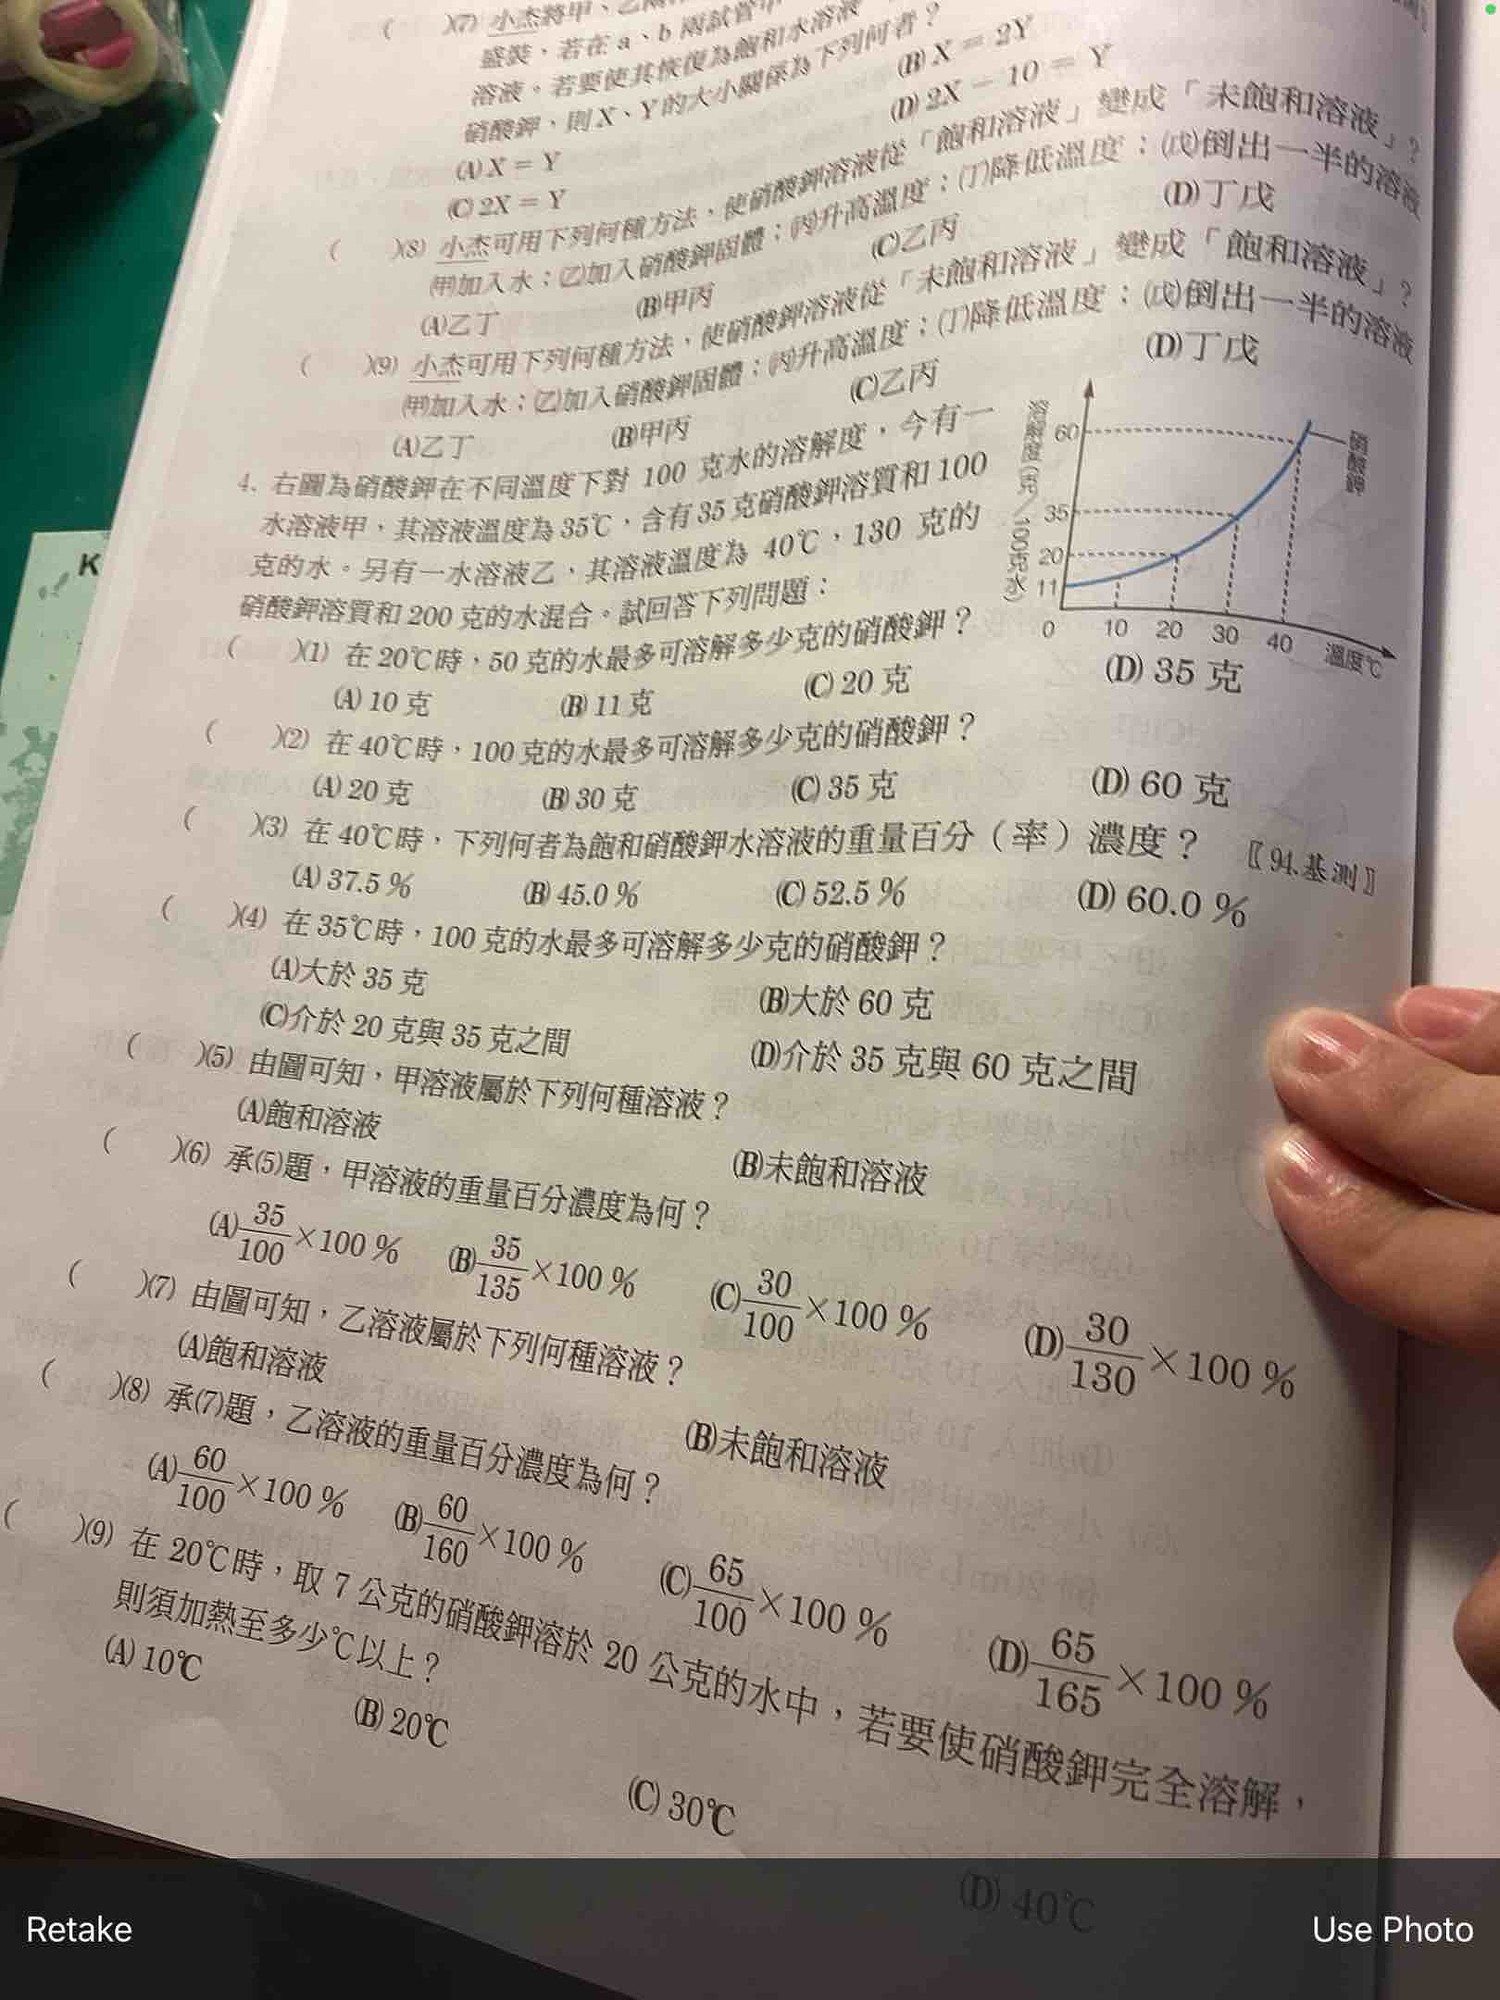 ( )(7) 小杰將甲、乙兩
盛裝，若在 a、b 兩試管中
溶液。若要使其恢復為飽和水溶液
硝酸鉀，則 X、Y 的大小關係為下列何者？
(A) X = Y (B) X = 2Y
(C) 2X = Y (D) 2X − 10 = Y
( )(8) 小杰可用下列何種方法，使硝酸鉀溶液從「飽和溶液」變成「未飽和溶液」？
(甲)加入水；(乙)加入硝酸鉀固體；(丙)升高溫度；(丁)降低溫度；(戊)倒出一半的溶液
(A)乙丁 (B)甲丙 (C)乙丙 (D)丁戊
( )(9) 小杰可用下列何種方法，使硝酸鉀溶液從「未飽和溶液」變成「飽和溶液」？
(甲)加入水；(乙)加入硝酸鉀固體；(丙)升高溫度；(丁)降低溫度；(戊)倒出一半的溶液
(A)乙丁 (B)甲丙 (C)乙丙 (D)丁戊
4. 右圖為硝酸鉀在不同溫度下對 100 克水的溶解度，今有一
水溶液甲，其溶液溫度為 35℃，含有 35 克硝酸鉀溶質和 100
克的水。另有一水溶液乙，其溶液溫度為 40℃，130 克的
硝酸鉀溶質和 200 克的水混合。試回答下列問題：
溶解度(克／100克水)
60
35
20
11
0 10 20 30 40 溫度℃
硝酸鉀
( )(1) 在 20℃時，50 克的水最多可溶解多少克的硝酸鉀？
(A) 10 克 (B) 11 克 (C) 20 克 (D) 35 克
( )(2) 在 40℃時，100 克的水最多可溶解多少克的硝酸鉀？
(A) 20 克 (B) 30 克 (C) 35 克 (D) 60 克
( )(3) 在 40℃時，下列何者為飽和硝酸鉀水溶液的重量百分（率）濃度？ 〖94.基測〗
(A) 37.5 % (B) 45.0 % (C) 52.5 % (D) 60.0 %
( )(4) 在 35℃時，100 克的水最多可溶解多少克的硝酸鉀？
(A)大於 35 克 (B)大於 60 克
(C)介於 20 克與 35 克之間 (D)介於 35 克與 60 克之間
( )(5) 由圖可知，甲溶液屬於下列何種溶液？
(A)飽和溶液 (B)未飽和溶液
( )(6) 承(5)題，甲溶液的重量百分濃度為何？
(A) 35/100 ×100 % (B) 35/135 ×100 % (C) 30/100 ×100 % (D) 30/130 ×100 %
( )(7) 由圖可知，乙溶液屬於下列何種溶液？
(A)飽和溶液 (B)未飽和溶液
( )(8) 承(7)題，乙溶液的重量百分濃度為何？
(A) 60/100 ×100 % (B) 60/160 ×100 % (C) 65/100 ×100 % (D) 65/165 ×100 %
( )(9) 在 20℃時，取 7 公克的硝酸鉀溶於 20 公克的水中，若要使硝酸鉀完全溶解，
則須加熱至多少℃以上？
(A) 10℃ (B) 20℃ (C) 30℃ (D) 40℃
K
Retake Use Photo